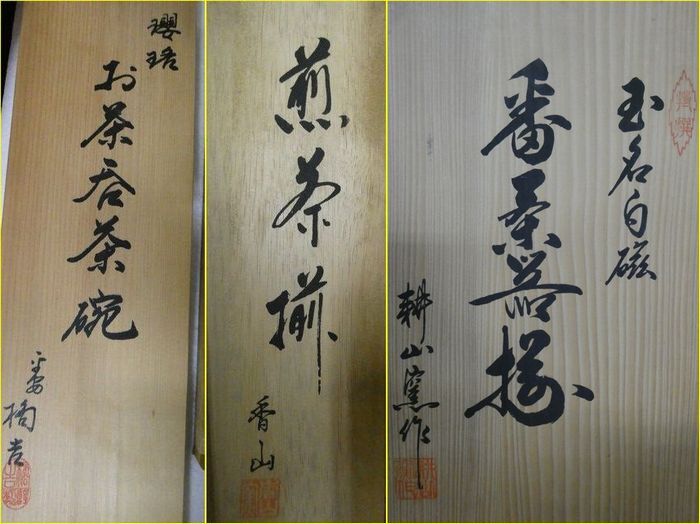 瓔珞
お茶呑茶碗
平安 橘吉
煎茶揃
香山
玉名白磁
番茶器揃
耕山窯作